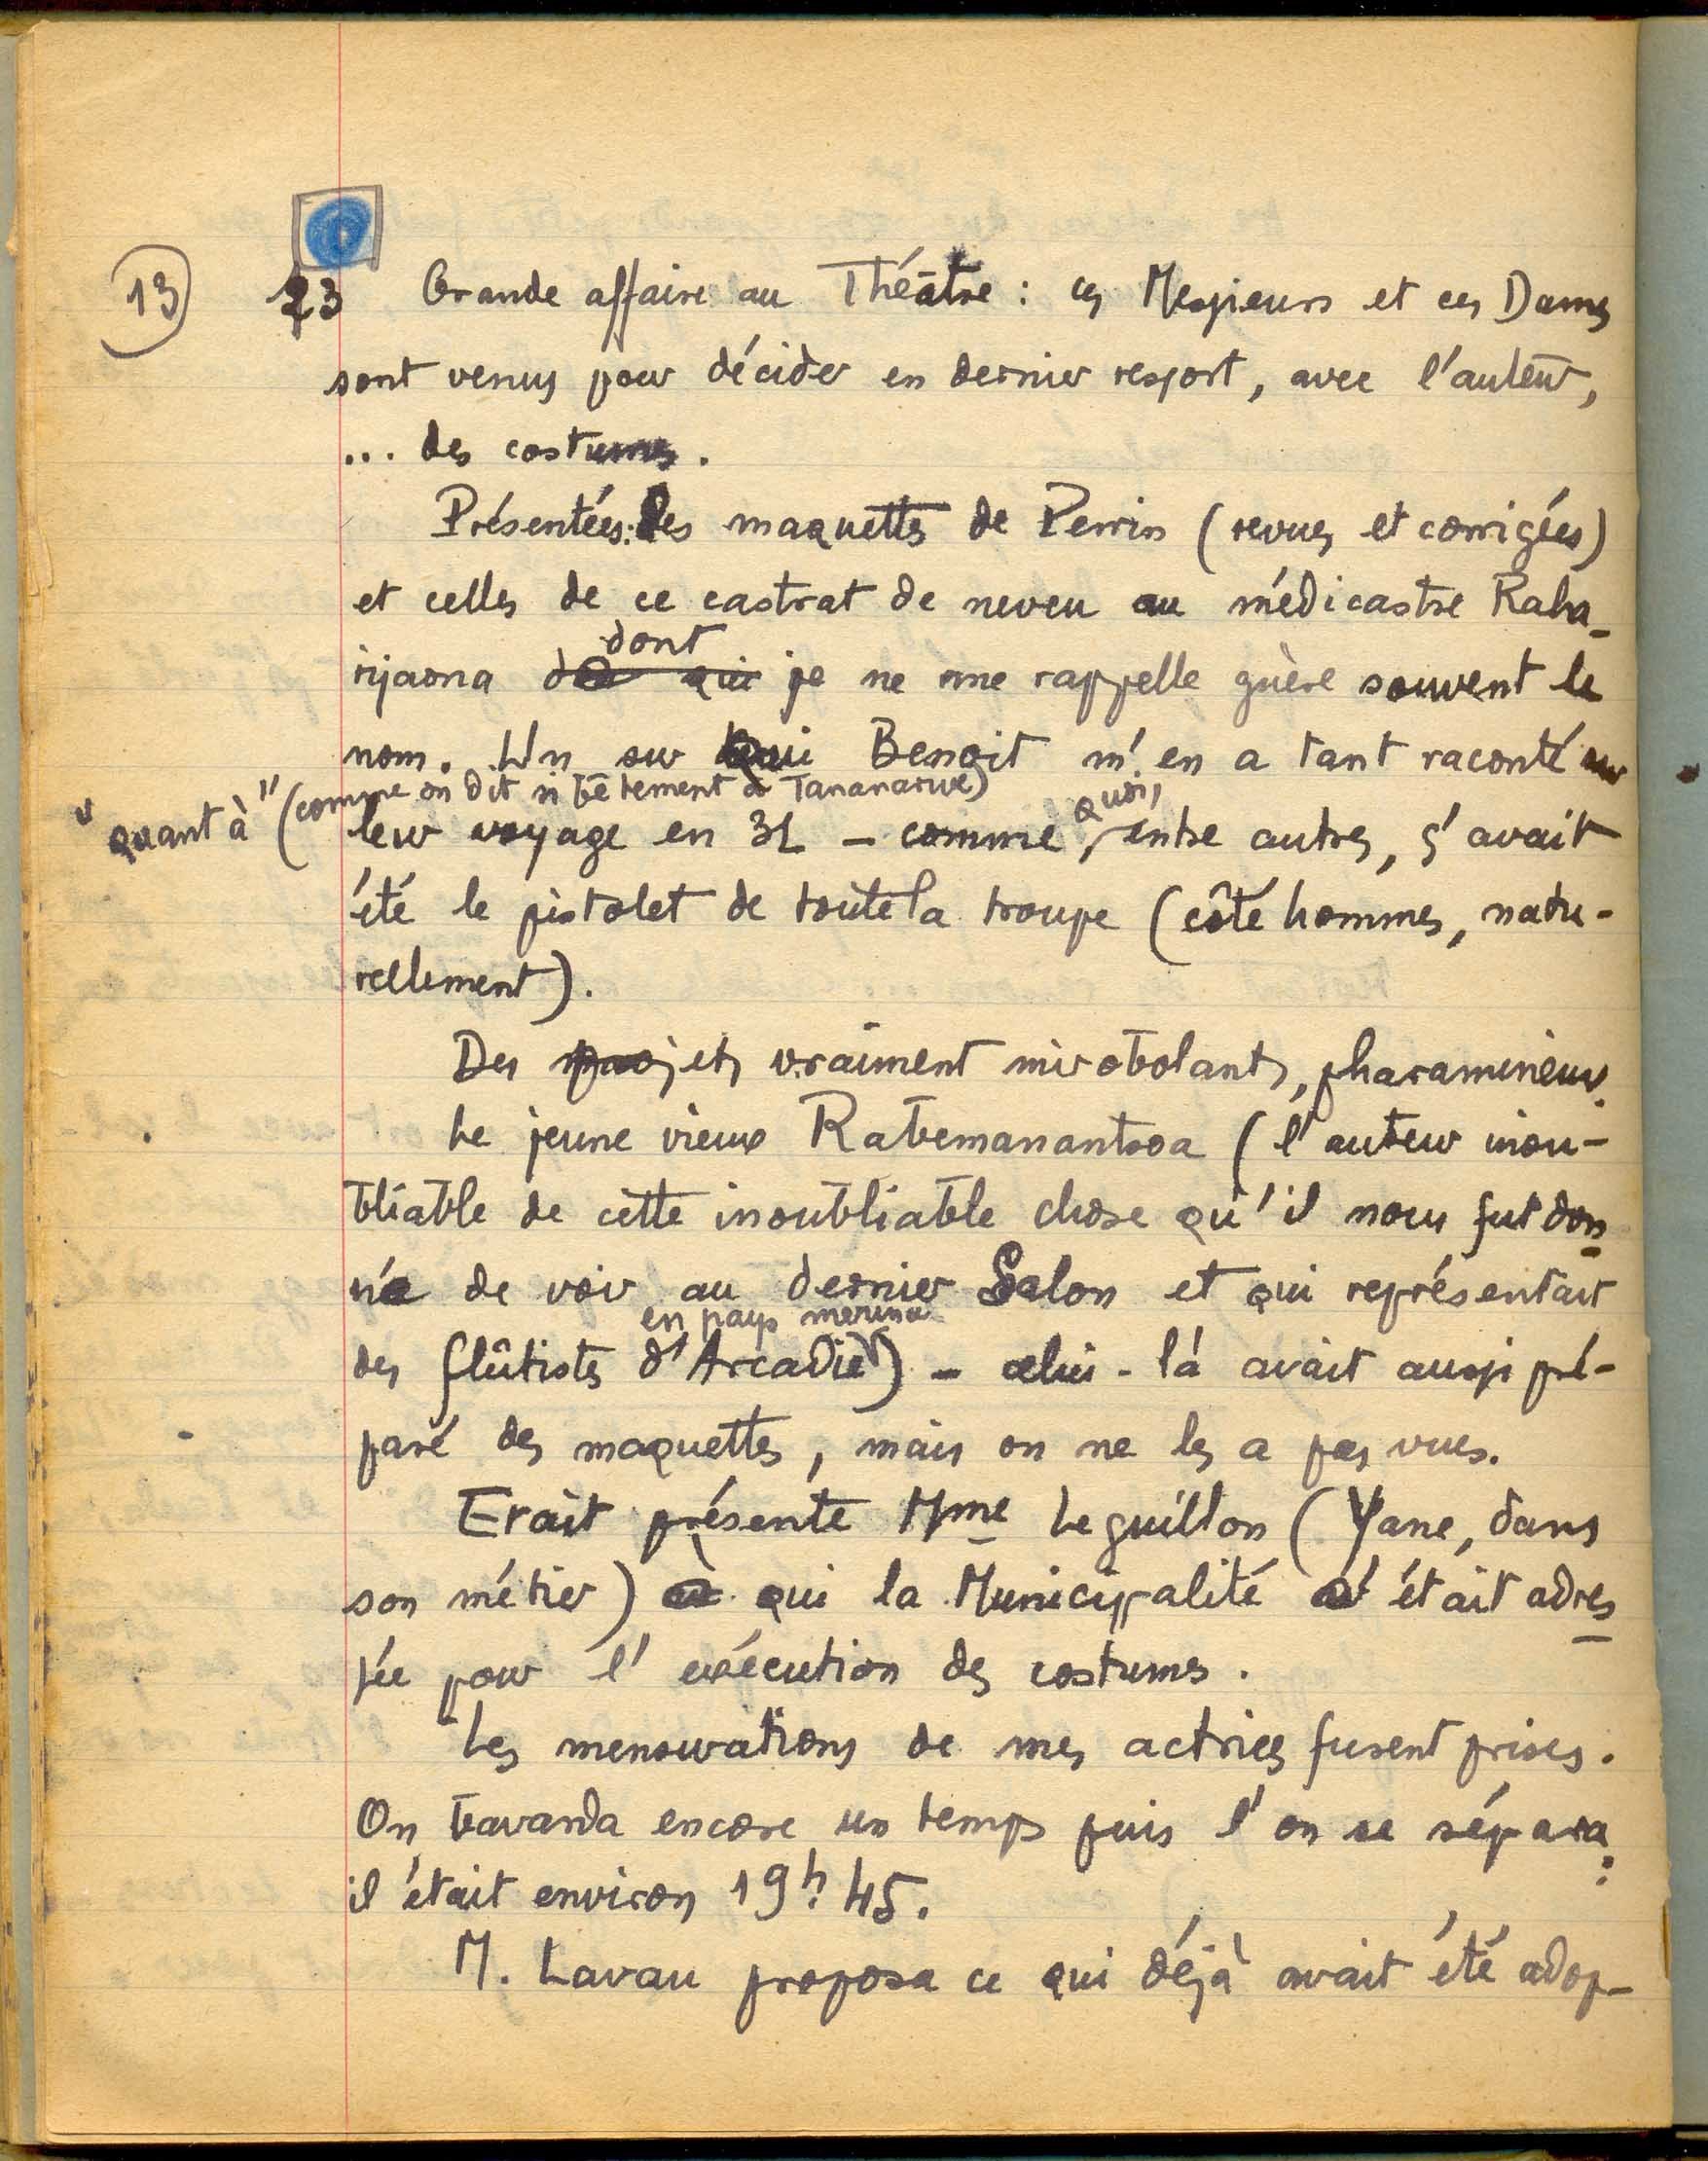 13
23 Grande affaire au Théâtre : ces Messieurs et ces Dames
sont venus pour décider en dernier ressort, avec l'auteur,
... des costumes.
Présentées : les maquettes de Perrin (revues et corrigées)
et celles de ce castrat de neveu au médicastre Raha-
rijaona de qui dont je ne me rappelle guère souvent le
nom. Un sur qui Benoit m'en a tant raconté
"quant à" (comme on dit si bêtement à Tananarive)
leur voyage en 31 – comme quoi, entre autres, ç'avait
été le pistolet de toute la troupe (côté hommes, natu-
rellement).
Des projets vraiment mirobolants, pharamineux.
Le jeune vieux Rabemanantsoa (l'auteur inou-
bliable de cette inoubliable chose qu'il nous fut don
né de voir au dernier Salon et qui représentait
des flûtistes d'Arcadie en pays merina) – celui-là avait aussi pré-
paré des maquettes, mais on ne les a pas vues.
Etait présente Mme Leguillon (Yane, dans
son métier) à qui la Municipalité s'était adres
sée pour l'exécution des costumes.
Les mensurations de mes actrices furent prises.
On bavarda encore un temps puis l'on se sépara :
il était environ 19h.45.
M. Lavau proposa ce qui déjà avait été adop-